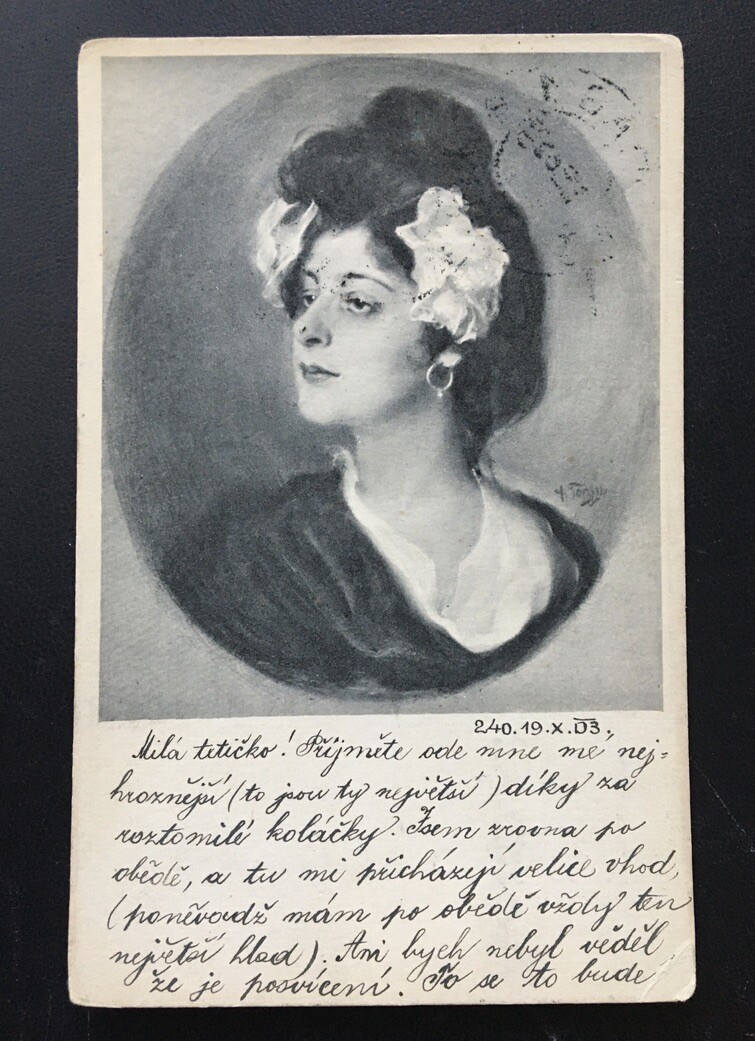 240.19.X.03.
Milá tetičko! Přijměte ode mne mé nej=
hroznější (to jsou ty největší) díky za
roztomilé koláčky. Jsem zrovna po
obědě, a tu mi přicházejí velice vhod,
(poněvadž mám po obědě vždy ten
největší hlad). Ani bych nebyl věděl
že je posvícení. To se to bude